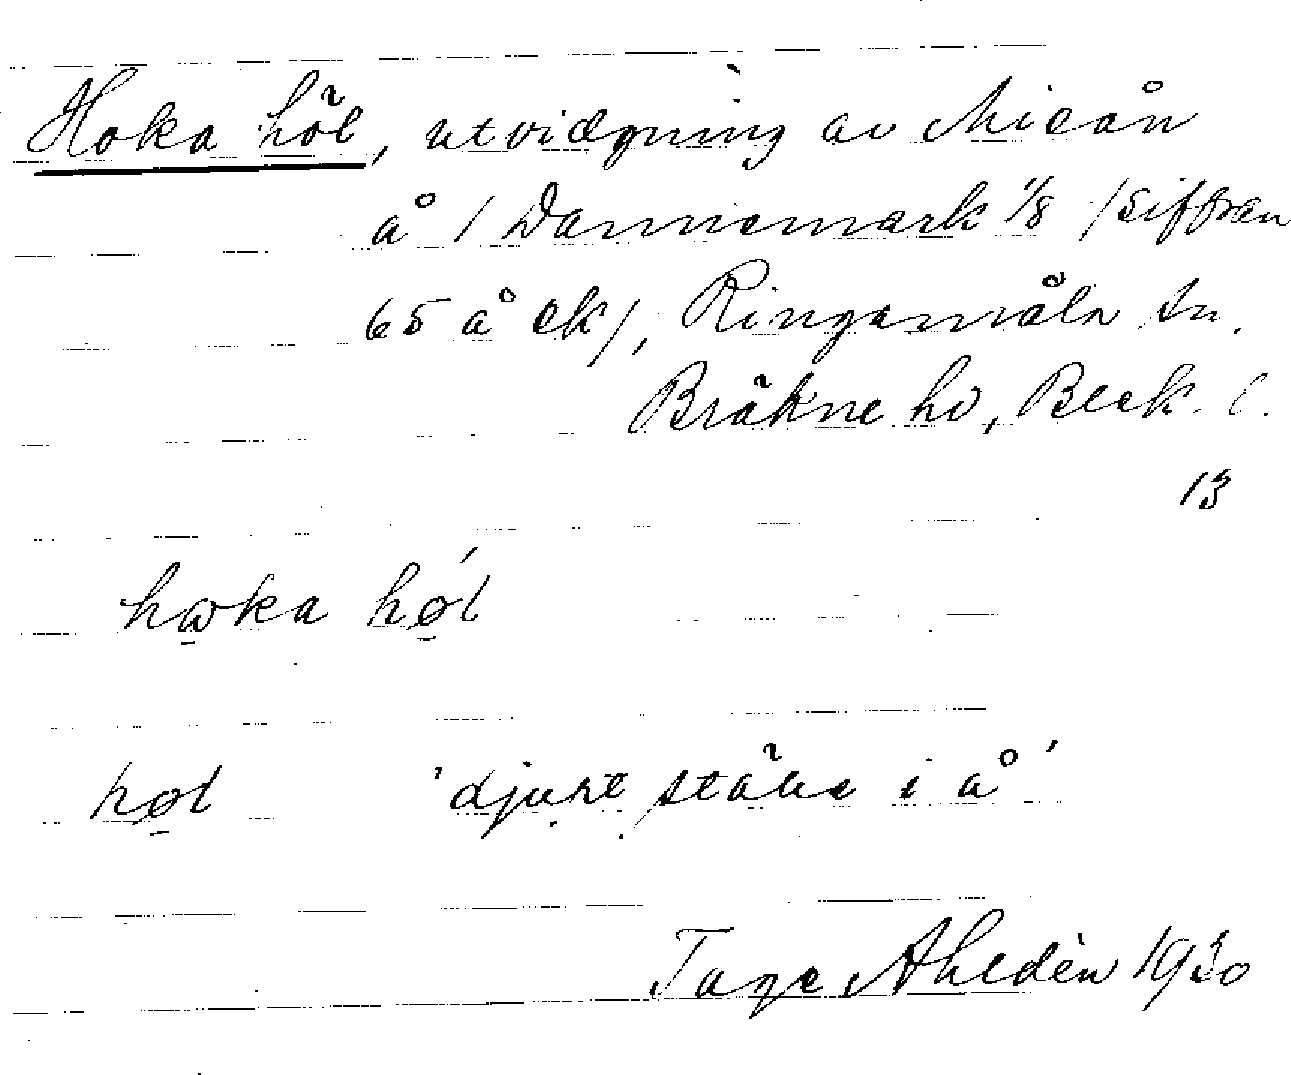 Hoka höl, utvidgning av Mieån
å / Dannemark 1/8 /siffran
65 å ek/, Ringamåla sn.
Bräkne hd, Blek. l.
13
hωka høl
høl 'djupt ställe i å'
Tage Ahldén 1930